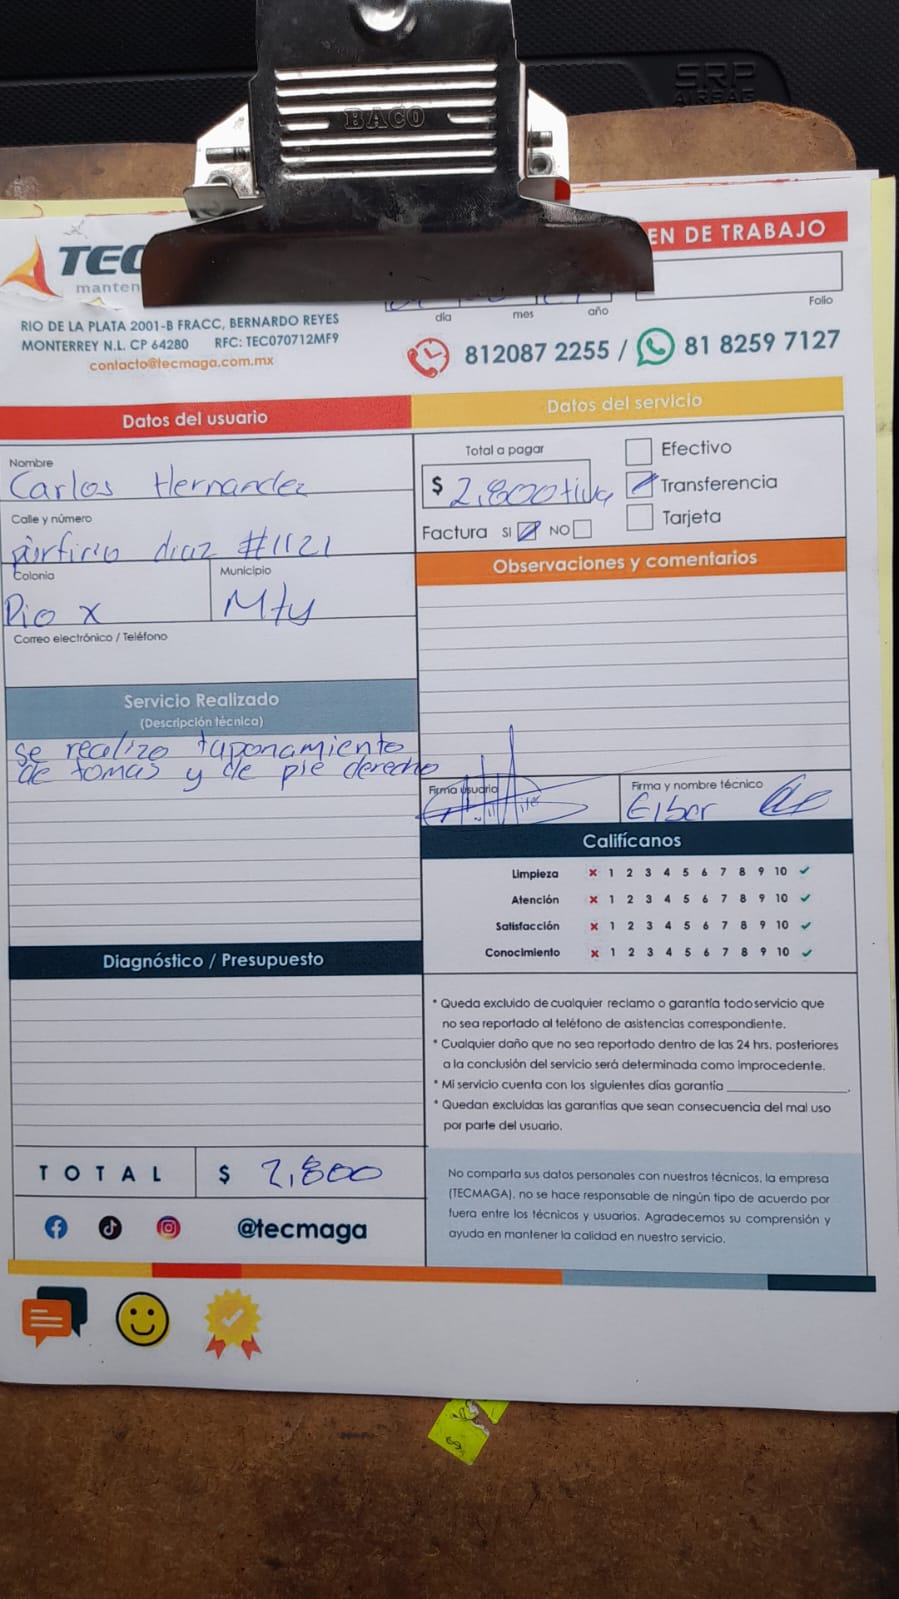 BACO
SRP
AIRBAG
TEC
manten
EN DE TRABAJO
día mes año
Folio
RIO DE LA PLATA 2001-B FRACC, BERNARDO REYES
MONTERREY N.L. CP 64280 RFC: TEC070712MF9
contacto@tecmaga.com.mx
812087 2255 / 81 8259 7127
Datos del usuario
Nombre
Carlos Hernandez
Calle y número
porfirio diaz #1121
Colonia
Pio X
Municipio
Mty
Correo electrónico / Teléfono
Servicio Realizado
(Descripción técnica)
se realizo taponamiento
de tomas y de pie derecho
Diagnóstico / Presupuesto
TOTAL $ 2,800
@tecmaga
Datos del servicio
Total a pagar
$ 2,800 +iva
Efectivo
Transferencia
Tarjeta
Factura SI NO
Observaciones y comentarios
Firma usuario
Firma y nombre técnico
Califícanos
Limpieza 1 2 3 4 5 6 7 8 9 10
Atención 1 2 3 4 5 6 7 8 9 10
Satisfacción 1 2 3 4 5 6 7 8 9 10
Conocimiento 1 2 3 4 5 6 7 8 9 10
* Queda excluido de cualquier reclamo o garantía todo servicio que
no sea reportado al teléfono de asistencias correspondiente.
* Cualquier daño que no sea reportado dentro de las 24 hrs. posteriores
a la conclusión del servicio será determinada como improcedente.
* Mi servicio cuenta con los siguientes días garantía
* Quedan excluidas las garantías que sean consecuencia del mal uso
por parte del usuario.
No comparta sus datos personales con nuestros técnicos, la empresa
(TECMAGA), no se hace responsable de ningún tipo de acuerdo por
fuera entre los técnicos y usuarios. Agradecemos su comprensión y
ayuda en mantener la calidad en nuestro servicio.